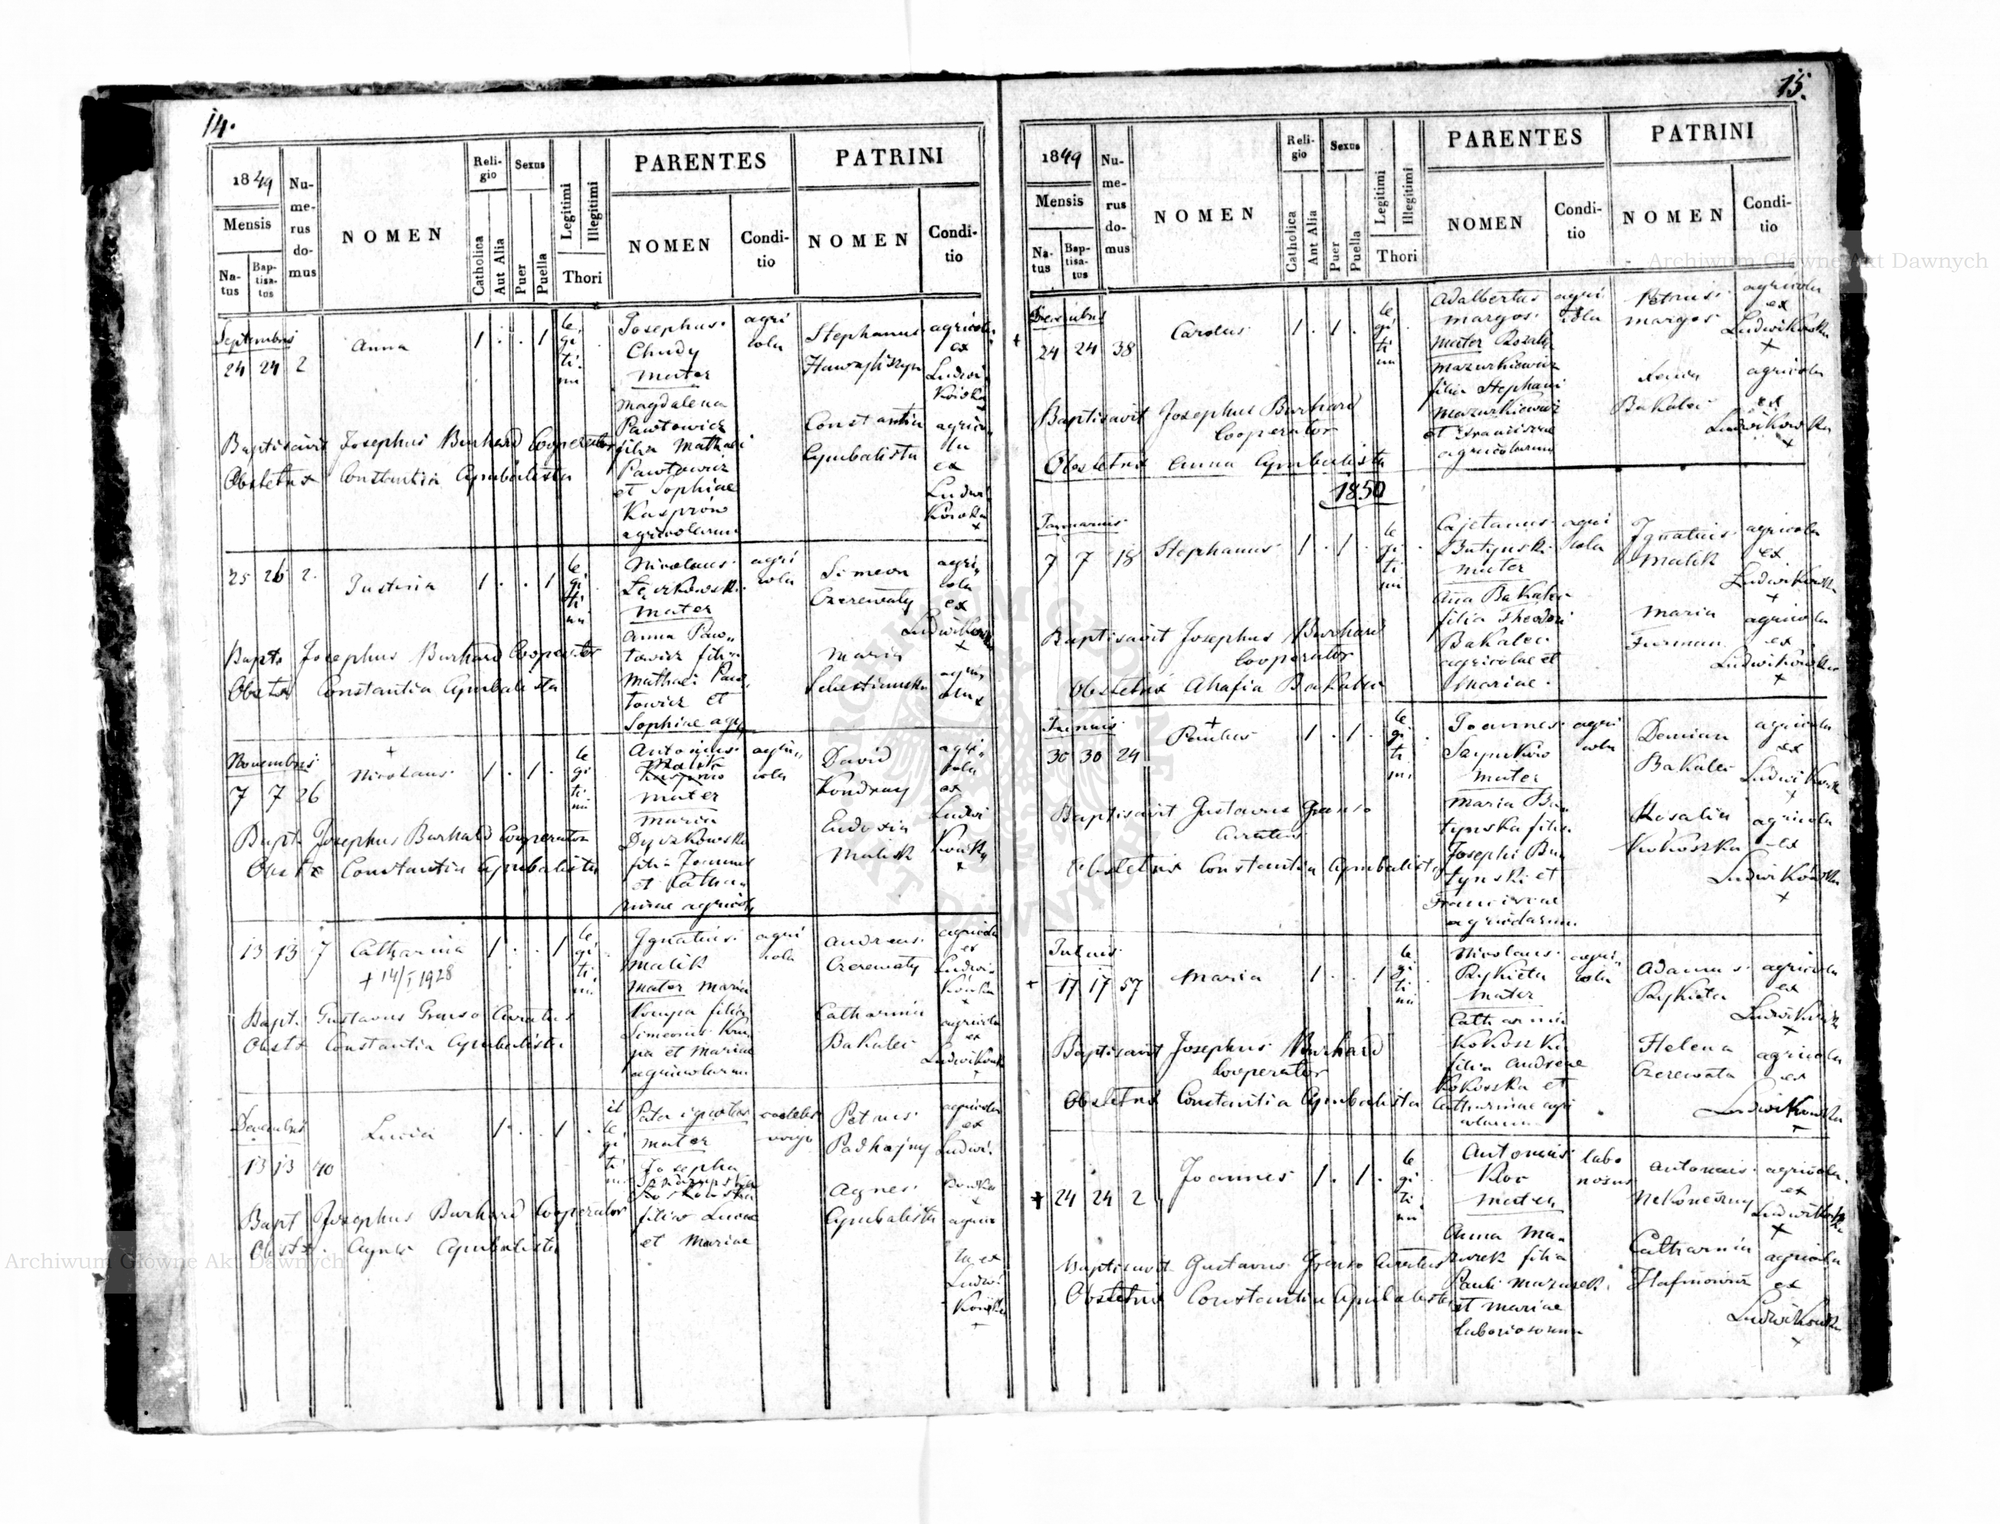 14.
1849
Mensis
Natus
Baptisatus
Numerus domus
NOMEN
Religio
Catholica
Aut Alia
Sexus
Puer
Puella
Legitimi
Illegitimi
Thori
PARENTES
NOMEN
Conditio
PATRINI
NOMEN
Conditio
Septembris
24 24 2 Anna 1 . . 1
legitimi
Josephus
Chudy
mater
Magdalena
Pawłowicz
filia Mathaei
Pawłowicz
et Sophiae
agricolarum
agricola
Stephanus
Constantia
Cymbalista
agricola
ex
Ludwikówka
Baptisavit Josephus Burhard Cooperator
Obstetrix Constantia Cymbalista
25 26 2. Justina 1 . . 1
legitimi
Nicolaus
mater
Anna Pawłowicz filia
Mathaei Pawłowicz et
Sophiae agr
agricola
Simeon
Czerewaty
Maria
agricola
ex
Ludwikówka
Bapts Josephus Burhard Cooperator
Obsta Constantia Cymbalista
Novembris
7 7 26 Nicolaus 1 . 1 .
legitimi
Antonius
Malik
mater
Maria
Dyczkowska
agricola
David
Kondracy
Eudoxia
Malik
agricola
ex
Ludwikówka
Bapt. Josephus Burhard Cooperator
Obstx Constantia Cymbalista
13 13 7 Catharina 1 . . 1
+ 14/I 1928
legitimi
Ignatius
Malik
mater Maria
Krupa filia
Simeonis Krupa et Mariae
agricolarum
agricola
Andreas
Czerewaty
Catharina
Bakalec
agricola
ex
Ludwikówka
Bapt. Gustavus Curatus
Obstx Constantia Cymbalista
Decembris
13 13 40 Lucia 1 . . 1
illegitimi
Pater ignotus
mater
Josepha
filia Lucae
et Mariae
Petrus
Podhajny
Agnes
Cymbalista
agricola
ex
Ludwikówka
Bapt Josephus Burhard Cooperator
Obstx. Agnes Cymbalista
15.
1849
Mensis
Natus
Baptisatus
Numerus domus
NOMEN
Religio
Catholica
Aut Alia
Sexus
Puer
Puella
Legitimi
Illegitimi
Thori
PARENTES
NOMEN
Conditio
PATRINI
NOMEN
Conditio
Decembris
24 24 38 Carolus 1 . 1 .
legitimi
Adalbertus
Margos
mater
Mazurkiewicz
filia Stephani
Mazurkiewicz
et Franciscae
agricolarum
agricola
Petrus
Margos
Bakalec
agricola
ex
Ludwikówka
Baptisavit Josephus Burhard
Cooperator
Obstetrix Anna Cymbalista
1850
Januarius
7 7 18 Stephanus 1 . 1 .
legitimi
Cajetanus
Butynski
mater
Anna Bakalec
filia Theodori
Bakalec
agricolae et
Mariae.
agricola
Ignatius
Malik
Maria
Furman
agricola
ex
Ludwikówka
Baptisavit Josephus Burhard
Cooperator
Obstetrix Ahafia Bakalec
Junius
30 30 24 Paulus 1 . 1 .
legitimi
Joannes
mater
Maria Butynska filia
Josephi Butynski et
Franciscae
agricolarum.
agricola
Demian
Bakalec
Rosalia
Kokoszka
agricola
ex
Ludwikówka
Baptisavit Gustavus
Curatus
Obstetrix Constantia Cymbalista
Julius
17 17 57 Maria 1 . . 1
legitimi
Nicolaus
Rykieta
mater
Catharina
Kokoszka
filia Andreae
Kokoszka et
Catharinae agricolarum
agricola
Adamus
Rykieta
Helena
Czerewata
agricola
ex
Ludwikówka
Baptisavit Josephus Burhard
Cooperator
Obstetrix Constantia Cymbalista
24 24 2 Joannes 1 . 1 .
legitimi
Antonius
mater
Anna Mazurek filia
Pauli Mazurek
et Mariae
laboriosorum
laboriosus
Antonius
Nekoneczny
Catharina
agricola
ex
Ludwikówka
Baptisavit Gustavus Curatus
Obstetrix Constantia Cymbalista
Archiwum Główne Akt Dawnych
Archiwum Główne Akt Dawnych
ARCHIWUM GŁÓWNE AKT DAWNYCH